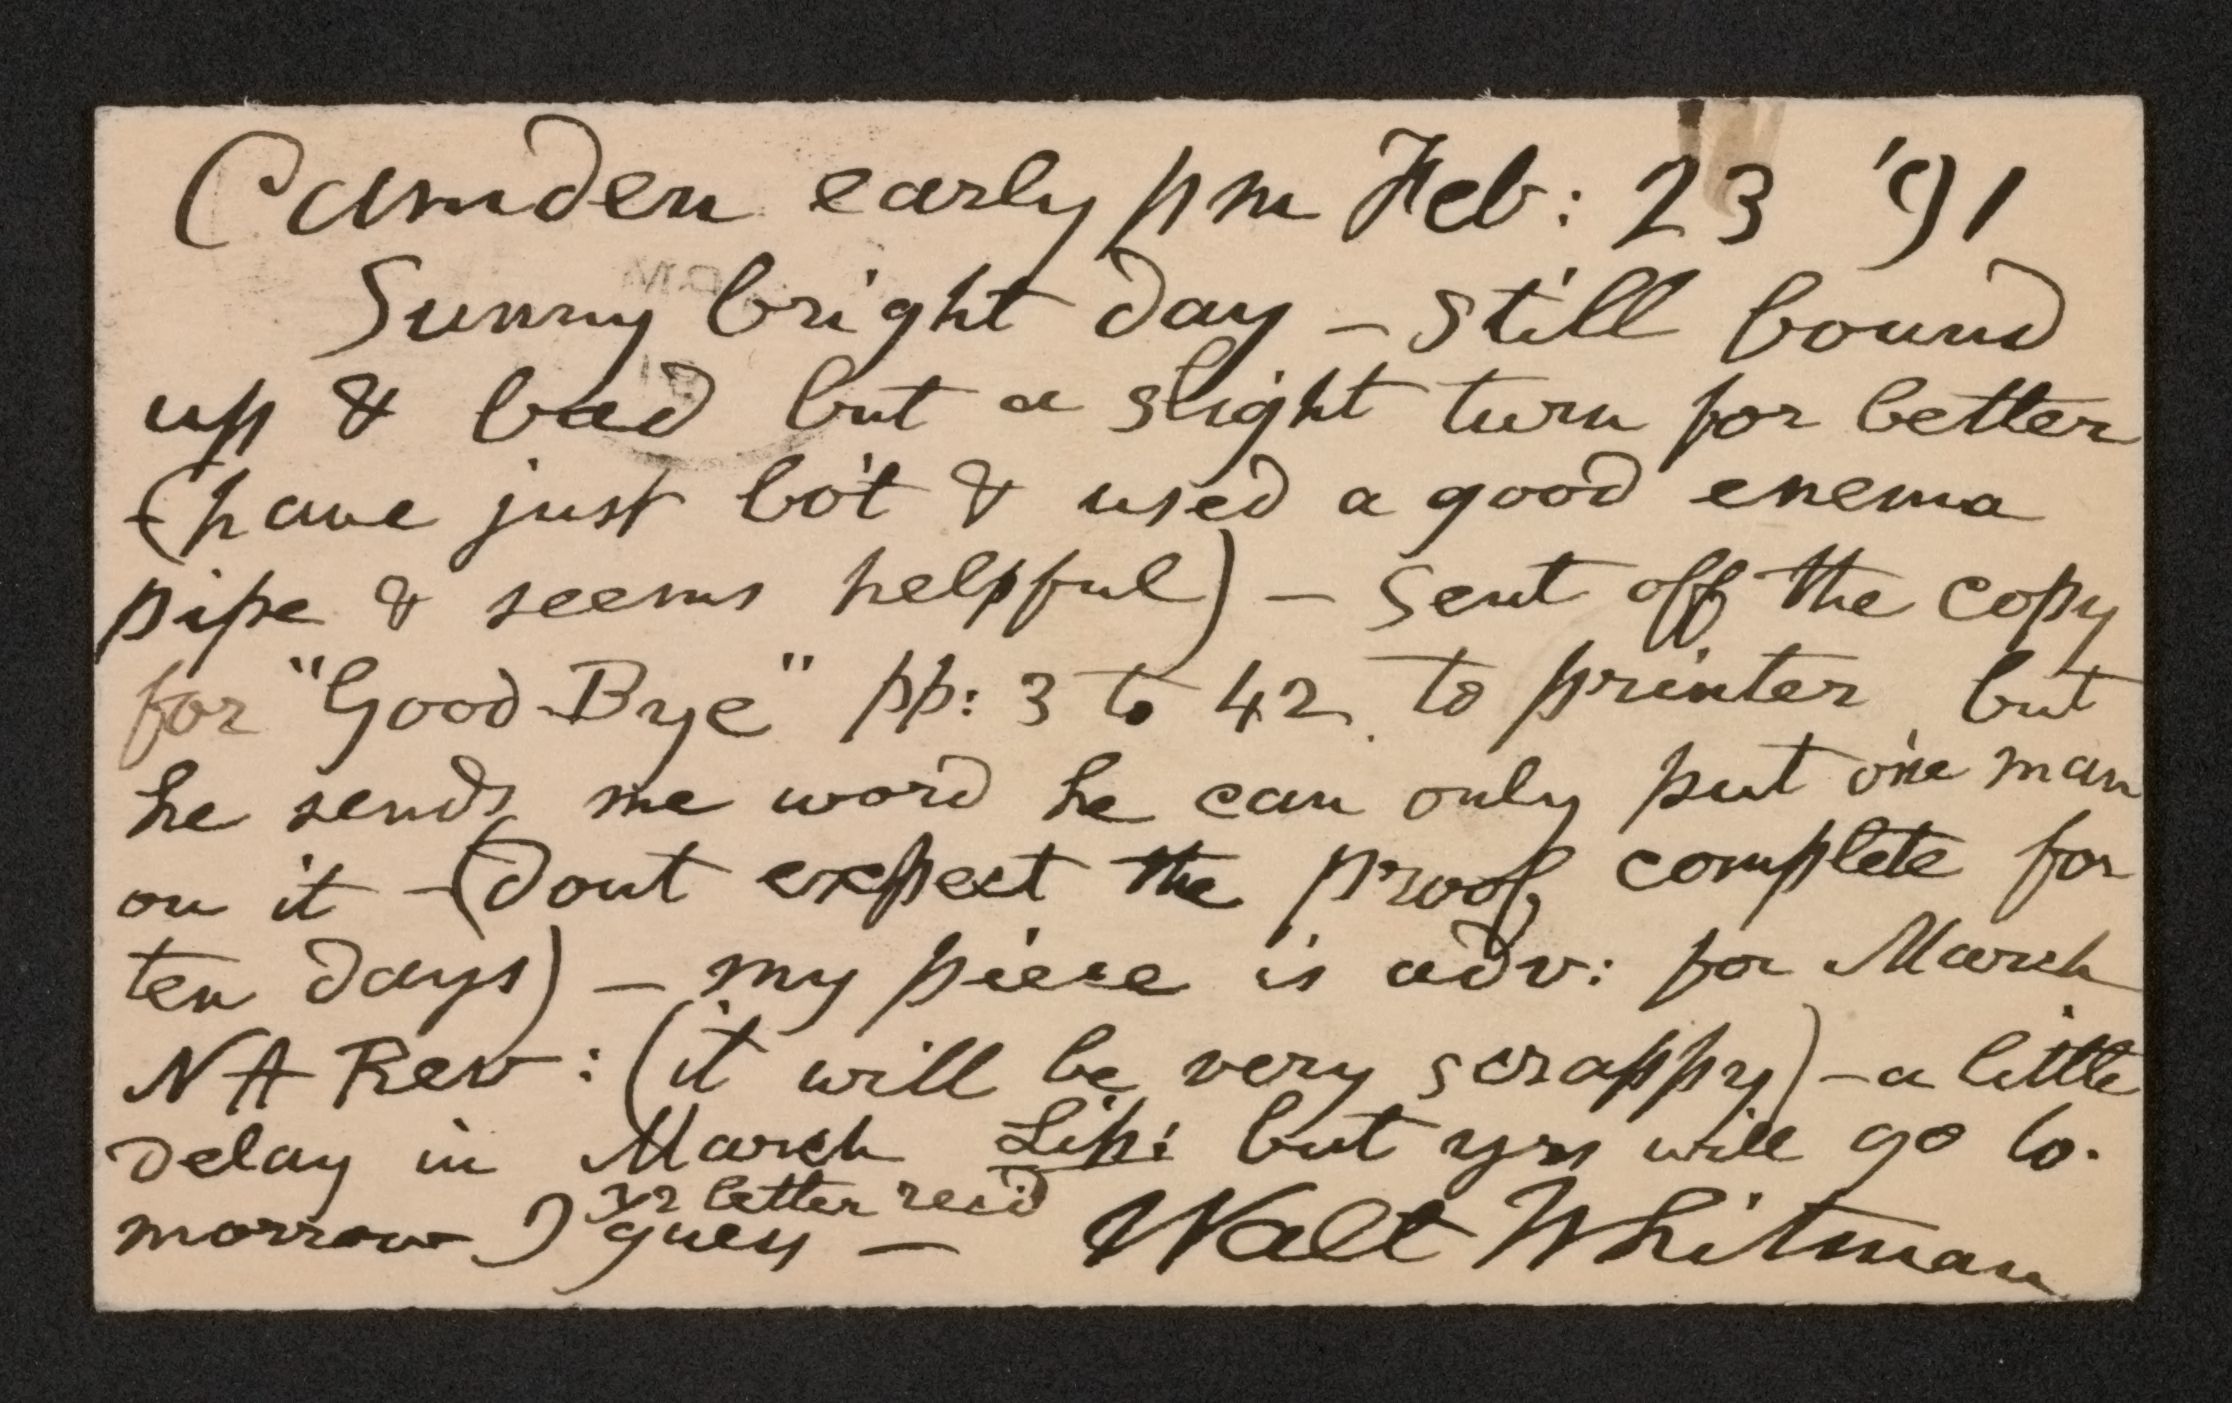 Camden early pm Feb: 23 '91
Sunny bright day - still bound
up & bad but a slight turn for better
(have just bo't & used a good enema
pipe & seems helpful) - Sent off the copy
for "Good-Bye" pp: 3 to 42 to printer but
he sends me word he can only put one man
on it - (dont expect the proof complete for
ten days) - my piece is adv: for March
N A Rev: (it will be very scrappy) - a little
delay in March Lip: but yrs will go to-
yr letter rec'd
morrow I guess - Walt Whitman